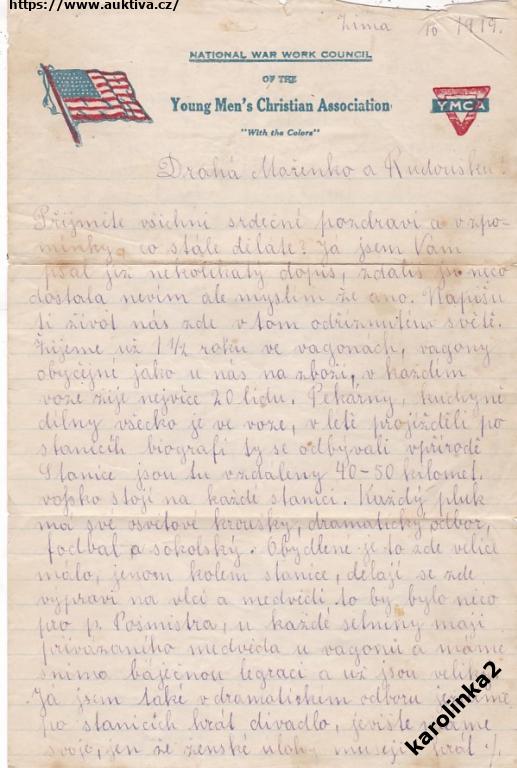 https://www.auktiva.cz/
Zima 10 1919.
NATIONAL WAR WORK COUNCIL
OF THE
Young Men's Christian Association
"With the Colors"
YMCA
Drahá Mařenko a Rudoušku!
Přijměte všichni srdečné pozdraví a vzpo-
mínky, co stále děláte? Já jsem Vám
psal již několikátý dopis, zdali js něco
dostala nevím ale myslím že ano. Napíšu
ti život nás zde v tom odříznutém světě.
Žijeme už 1 1/2 roku ve vagonách, vagony
obyčejné jako u nás na zboží, v každém
voze žije nejvíce 20 lidu. Pekárny, kuchyně
dílny všecko je ve voze, v létě projížděli po
stanicích biografi ty se odbývali v přírodě
Stanice jsou tu vzdáleny 40-50 kilomet.
vojsko stojí na každé stanci. Každý pluk
má své osvětové kroužky, dramatický odbor,
fodbal a sokolský. Obydlené je to zde velice
málo, jenom kolem stanice, dělají se zde
vypraví na vlci a medvědi to by bylo něco
pro p. Pošmistra, u každé setniny mají
přivázaného medvěda u vagonu a máme
snimo báječnou legraci a už jsou veliký
Já jsem také v dramatickém odboru jezdíme
po stanicích hrát divadlo, jeviště máme
svoje, jen že ženské úlohy musejí hrát
karolinka2